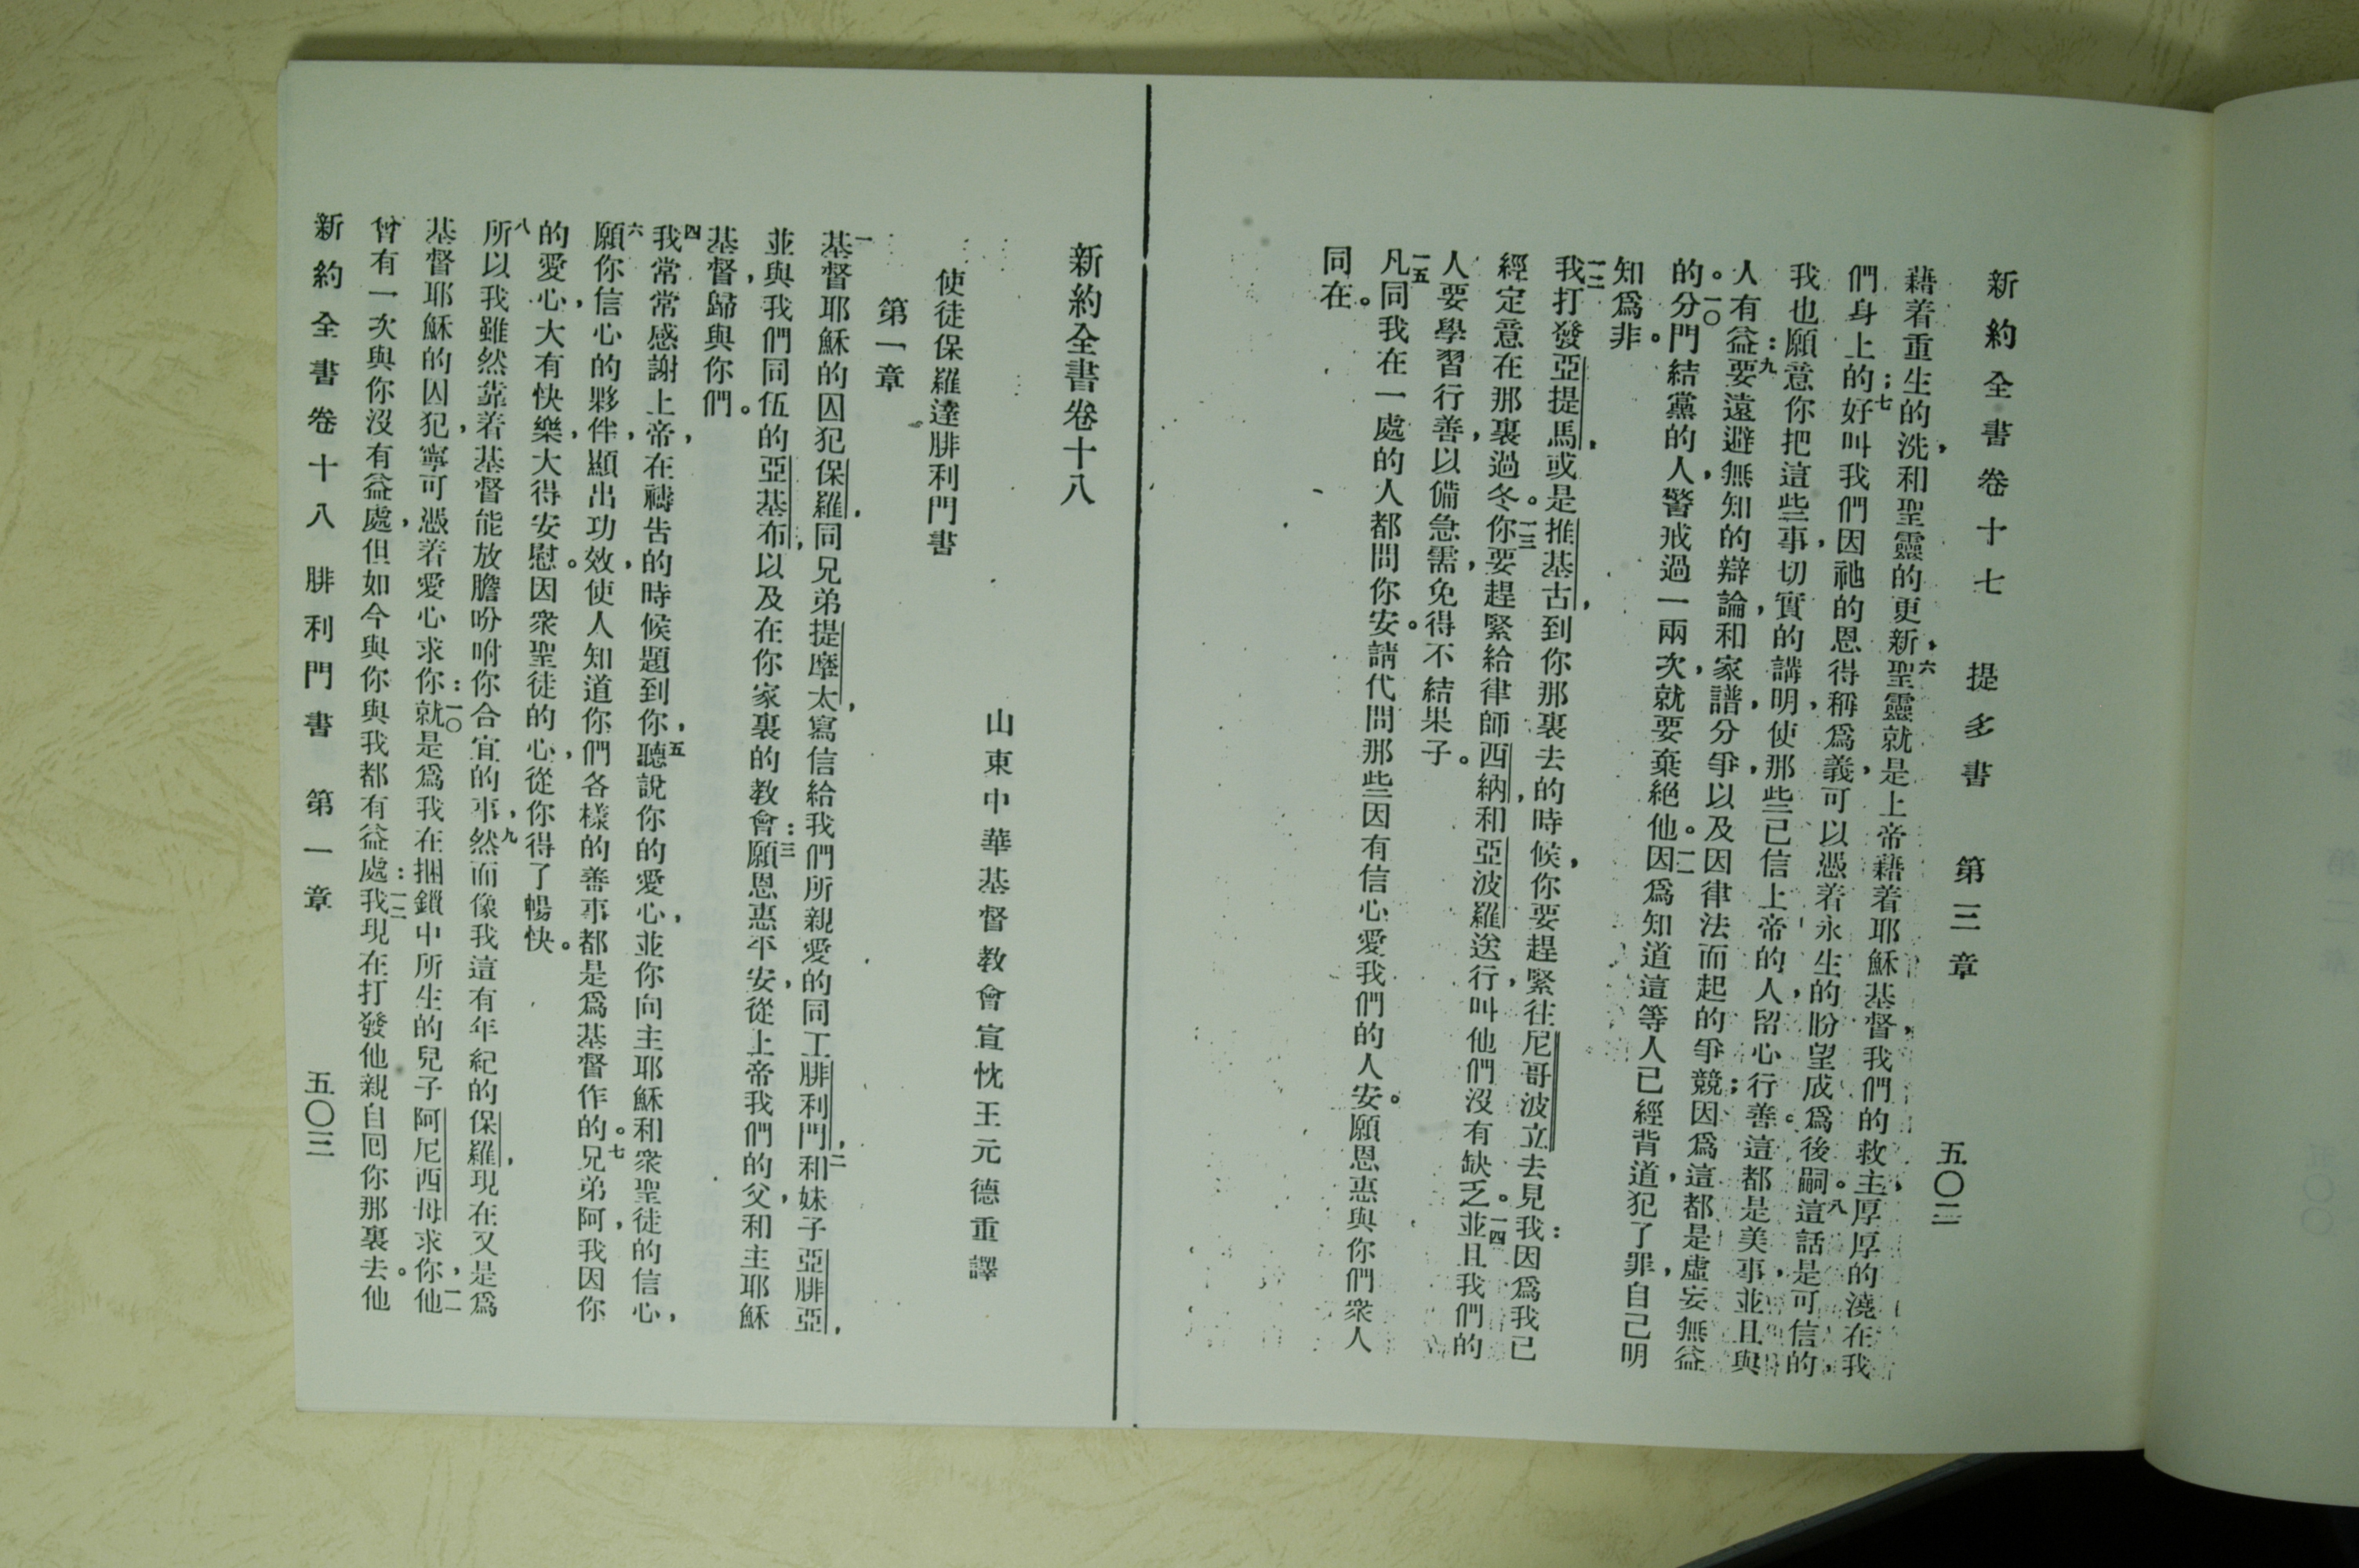 新約全書卷十七 提多書 第三章 五〇二
藉着重生的洗，和聖靈的更新，六聖靈就是上帝藉着耶穌基督，我們的救主，厚厚的澆在我
們身上的；七好叫我們因祂的恩得稱爲義，可以憑着永生的盼望成爲後嗣。八這話是可信的，
我也願意你把這些事，切實的講明，使那些已信上帝的人，留心行善。這都是美事，並且與
人有益：九要遠避無知的辯論，和家譜，分爭，以及因律法而起的爭競；因爲這都是虛妄無益
的。一〇分門結黨的人，警戒過一兩次，就要棄絕他。一一因爲知道這等人已經背道，犯了罪，自己明
知爲非。
一二我打發亞提馬，或是推基古，到你那裏去的時候，你要趕緊往尼哥波立去見我：因爲我已
經定意在那裏過冬。一三你要趕緊給律師西納，和亞波羅送行，叫他們沒有缺乏。一四並且我們的
人要學習行善，以備急需，免得不結果子。
一五凡同我在一處的人都問你安。請代問那些因有信心愛我們的人安。願恩惠與你們衆人
同在。
新約全書卷十八
山東中華基督教會宣忱王元德重譯
使徒保羅達腓利門書
第一章
一基督耶穌的囚犯保羅，同兄弟提摩太，寫信給我們所親愛的同工腓利門，二和妹子亞腓亞，
並與我們同伍的亞基布，以及在你家裏的教會：三願恩惠平安，從上帝我們的父，和主耶穌
基督，歸與你們。
四我常常感謝上帝，在禱告的時候題到你，五聽說你的愛心，並你向主耶穌和衆聖徒的信心，
六願你信心的夥伴，顯出功效，使人知道你們各樣的善事都是爲基督作的。七兄弟阿，我因你
的愛心，大有快樂，大得安慰。因衆聖徒的心，從你得了暢快。
八所以我雖然靠着基督能放膽吩咐你合宜的事，九然而像我這有年紀的保羅，現在又是爲
基督耶穌的囚犯，寧可憑着愛心求你：一〇就是爲我在捆鎖中所生的兒子阿尼西母求你，一一他
曾有一次與你沒有益處，但如今與你與我都有益處：一二我現在打發他親自囘你那裏去。他
新約全書卷十八 腓利門書 第一章 五〇三